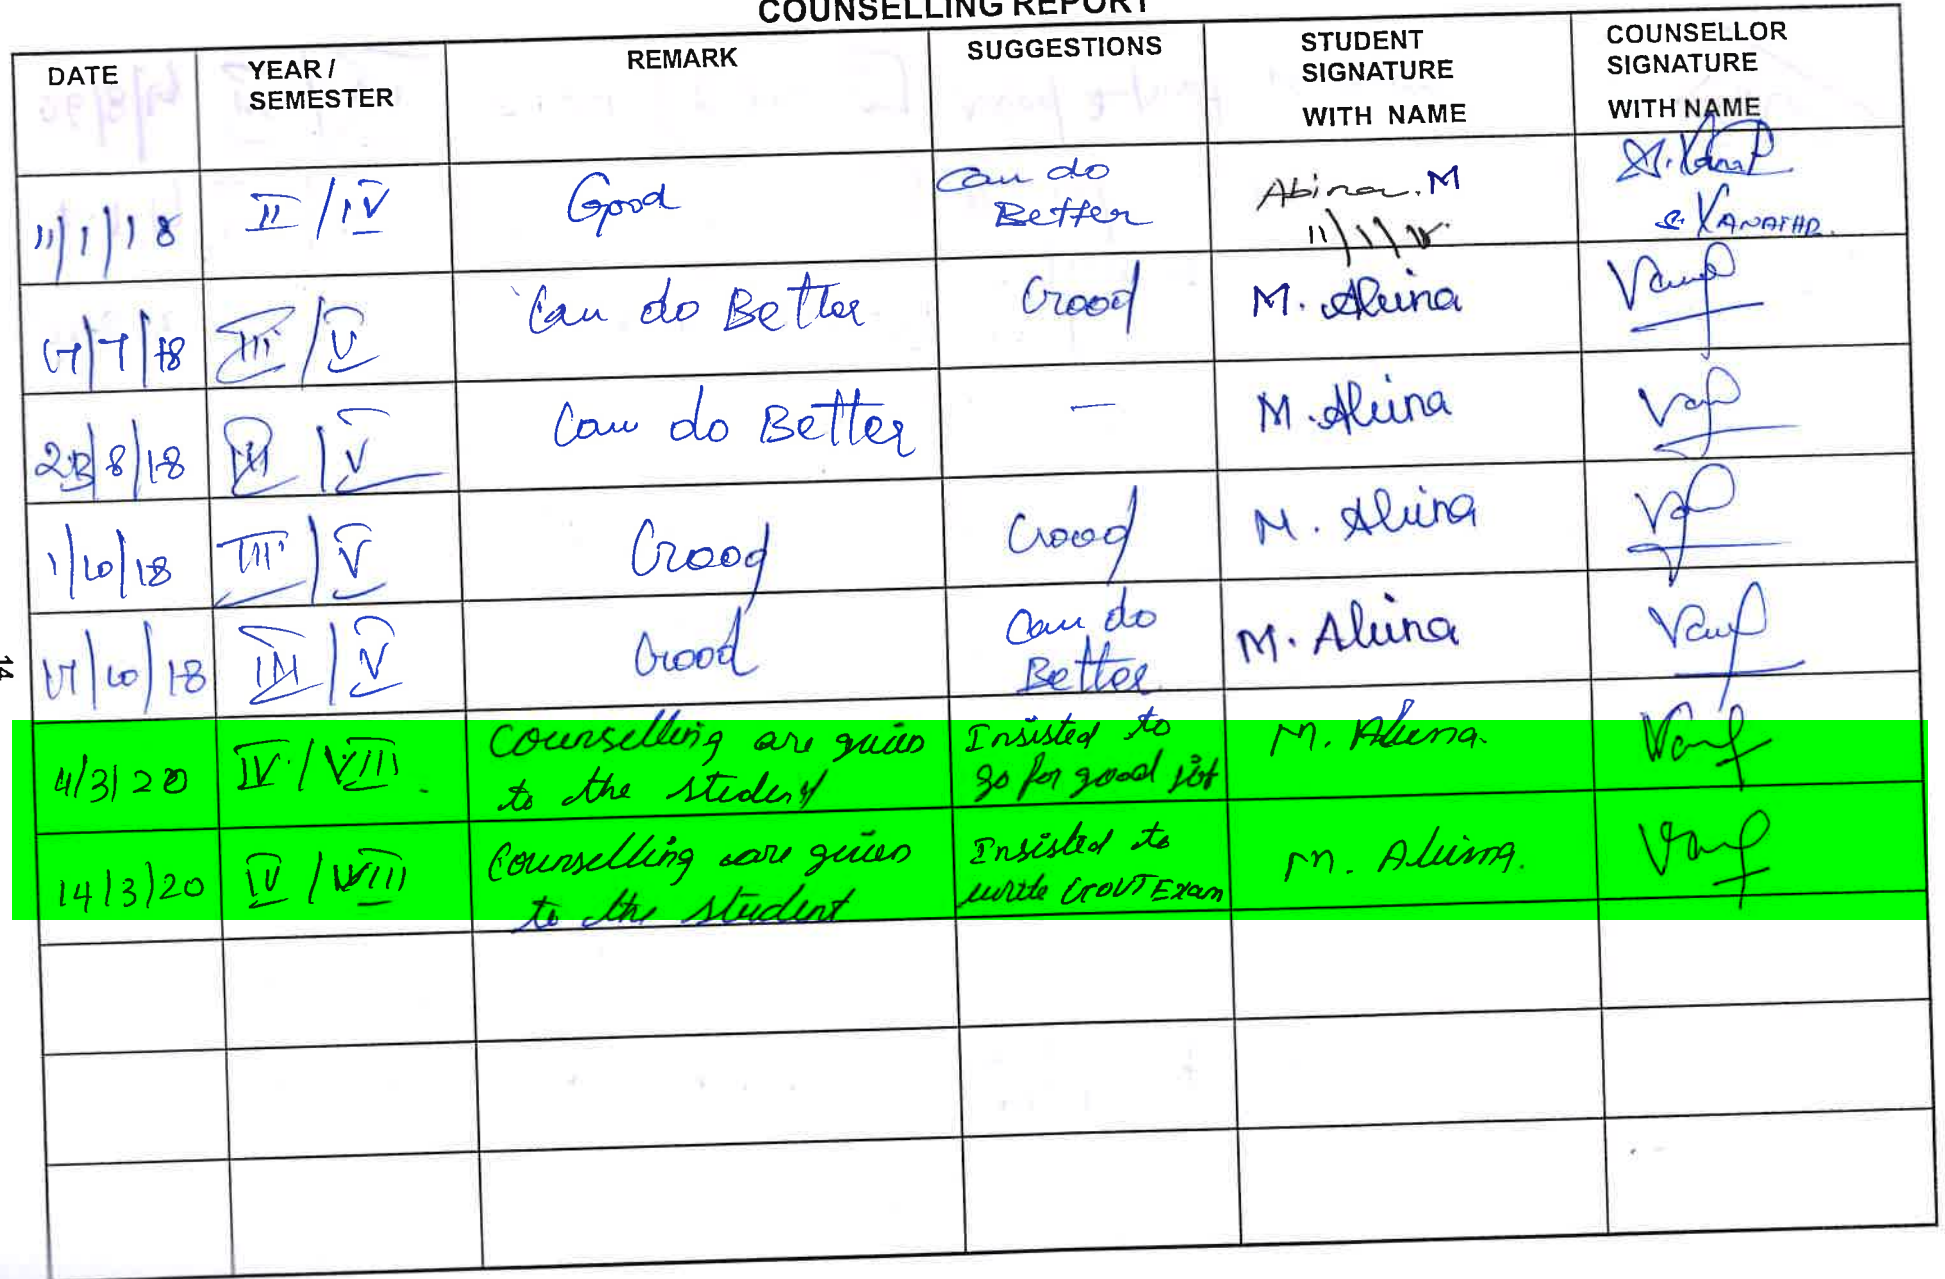 COUNSELLING REPORT
DATE
YEAR /
SEMESTER
REMARK
SUGGESTIONS
STUDENT
SIGNATURE
WITH NAME
COUNSELLOR
SIGNATURE
WITH NAME
11/1/18
II / IV
Good
Can do
Better
Abina. M
11/1/18
17/7/18
III / V
Can do Better
Good
M. Abina
23/8/18
III / V
Can do Better
—
M. Abina
1/10/18
III / V
Good
Good
M. Abina
17/10/18
III / V
Good
Can do
Better
M. Abina
4/3/20
IV / VIII
Counselling are given
to the student
Insisted to
go for good job
M. Abina.
14/3/20
IV / VIII
Counselling are given
to the student
Insisted to
write GOVT Exam
M. Abina.
14